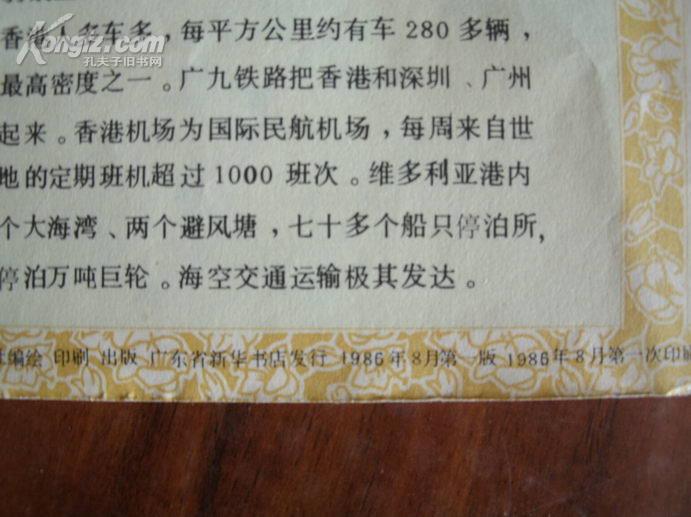 Kongfz.com
孔夫子旧书网
香港人多车多，每平方公里约有车 280 多辆，
最高密度之一。广九铁路把香港和深圳、广州
起来。香港机场为国际民航机场，每周来自世
地的定期班机超过 1000 班次。维多利亚港内
个大海湾、两个避风塘，七十多个船只停泊所，
停泊万吨巨轮。海空交通运输极其发达。
编绘 印刷 出版 广东省新华书店发行 1986年8月第一版 1986年8月第一次印刷